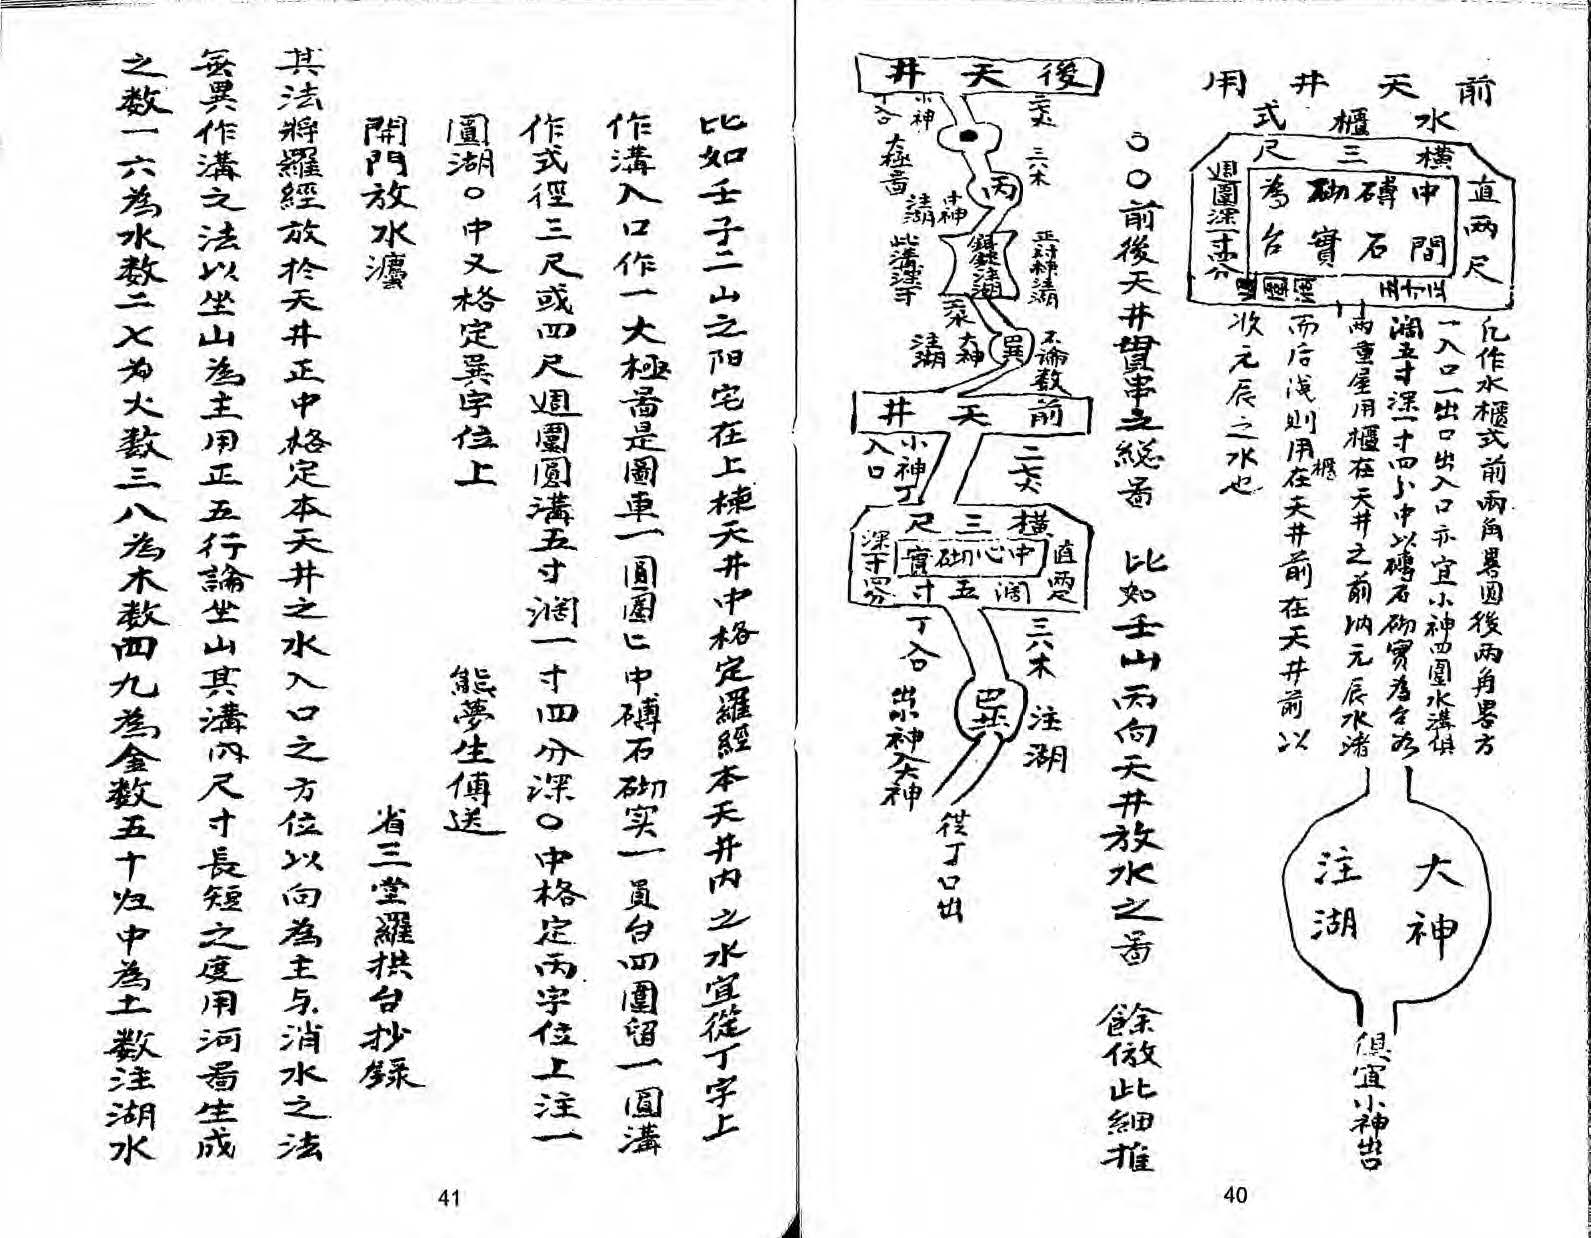 前天井用
水櫃式
橫三尺
直兩尺
週圍深一寸四分
中間
磚石
砌實
為台
凡作水櫃式前兩角畧圓後兩角畧方
一入口一出口出入口亦宜小神四圍水溝俱
濶五寸深一寸四分中以磚石砌實為台为
兩重屋用櫃在天井之前納元辰水渚
而后浅則用櫃在天井前在天井前以
收元辰之水也
大神
注湖
俱宜小神出口
〇〇前後天井貫串之總圖 比如壬山丙向天井放水之圖 餘倣此細推
後天井
二七火
小神
丁入口
太極圖
三六木
丙
小神
注湖
正對神注湖
此溝深寸
不論数
巽
大神
注湖
前天井
二七火
小神丁
入口
橫三尺
直兩尺
中心砌實
深一寸四分
濶五寸
丁入口
三六木
注湖
出小神入大神
從丁口出
40
比如壬子二山之阳宅在上棟天井中格定羅經本天井内之水宜從丁字上
作溝入口作一大極圖是圖車一圓圈匕中磚石砌实一員台四圍留一圓溝
作式徑三尺或四尺週圍圓溝五寸濶一寸四分深〇中格定丙字位上注一
圓湖〇中又格定巽字位上 熊夢生傳送
開門放水灋 省三堂羅拱台抄錄
其法將羅經放於天井正中格定本天井之水入口之方位以向為主与消水之法
無異作溝之法以坐山為主用正五行論坐山其溝内尺寸長短之度用河圖生成
之数一六為水数二七为火数三八為木数四九為金数五十归中為土数注湖水
41